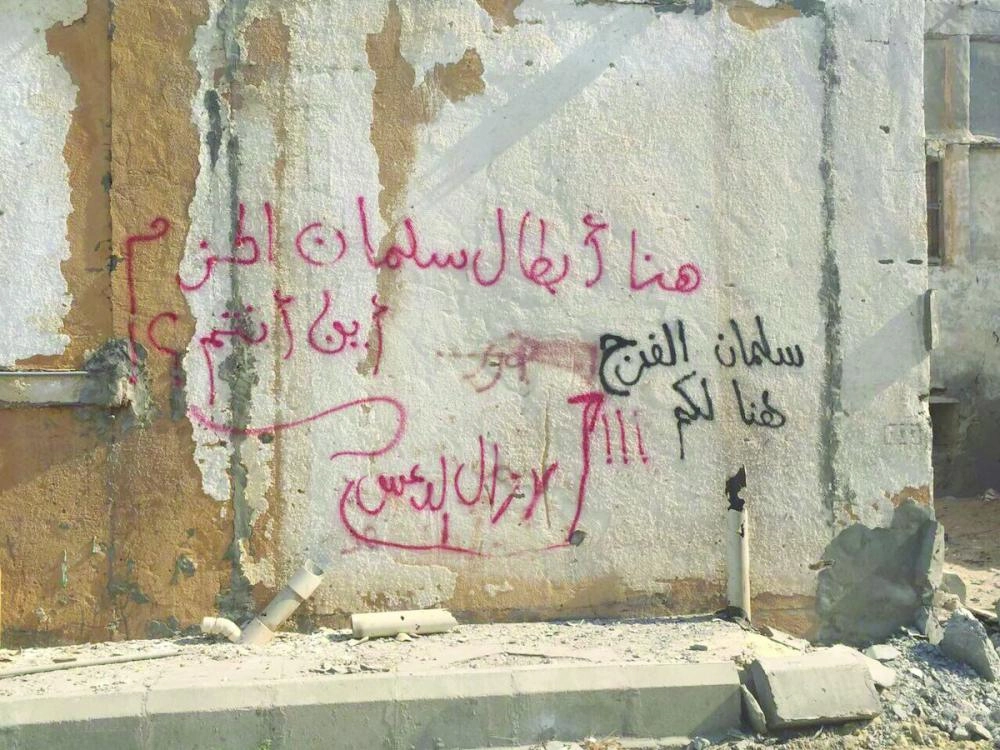 هنا أبطال سلمان الحزم
أين أنتم؟!
سلمان الفرج
هنا لكم
!!!
لا تزال